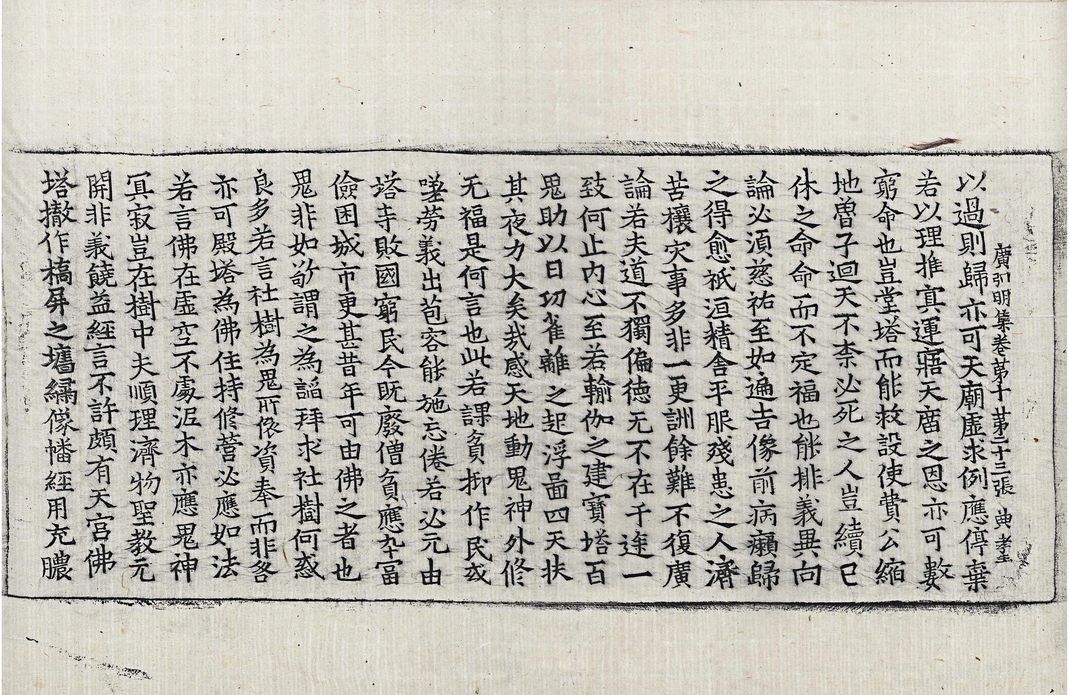 以過則歸亦可天廟虛求例應停棄
廣弘明集卷第十 第二十三張 典 孝玉
若以理推冥運寤天廟之恩亦可數
窮命也豈堂塔而能救設使費公縮
地曽子迴天不柰必死之人豈續已
休之命命而不定福也能排義異向
論必湏慈祐至如遍吉像前病癩歸
之得愈祇洹精舍平服殘患之人濟
苦禳灾事多非一更訓餘難不復廣
論若夫道不獨偏德无不在千途一
致何止内心至若輸伽之建寶塔百
鬼助以日功雀離之起浮啚四天扶
其夜力大矣㢤感天地動鬼神外修
无福是何言也此若課貧抑作民或
嗟勞義出苞容能施忘倦若必元由
塔寺敗國窮民今旣廢僧貧應卆富
儉困城市更甚昔年可由佛之者也
鬼非如敬謂之為謟拜求社樹何惑
良多若言社樹為鬼所依資奉而非咎
亦可殿塔為佛住持修營必應如法
若言佛在虛空不處泥木亦應鬼神
冥寂豈在樹中夫順理濟物聖教元
開非義饒益經言不許頗有天宮佛
塔撤作橋屏之墻繡像幡經用充膿